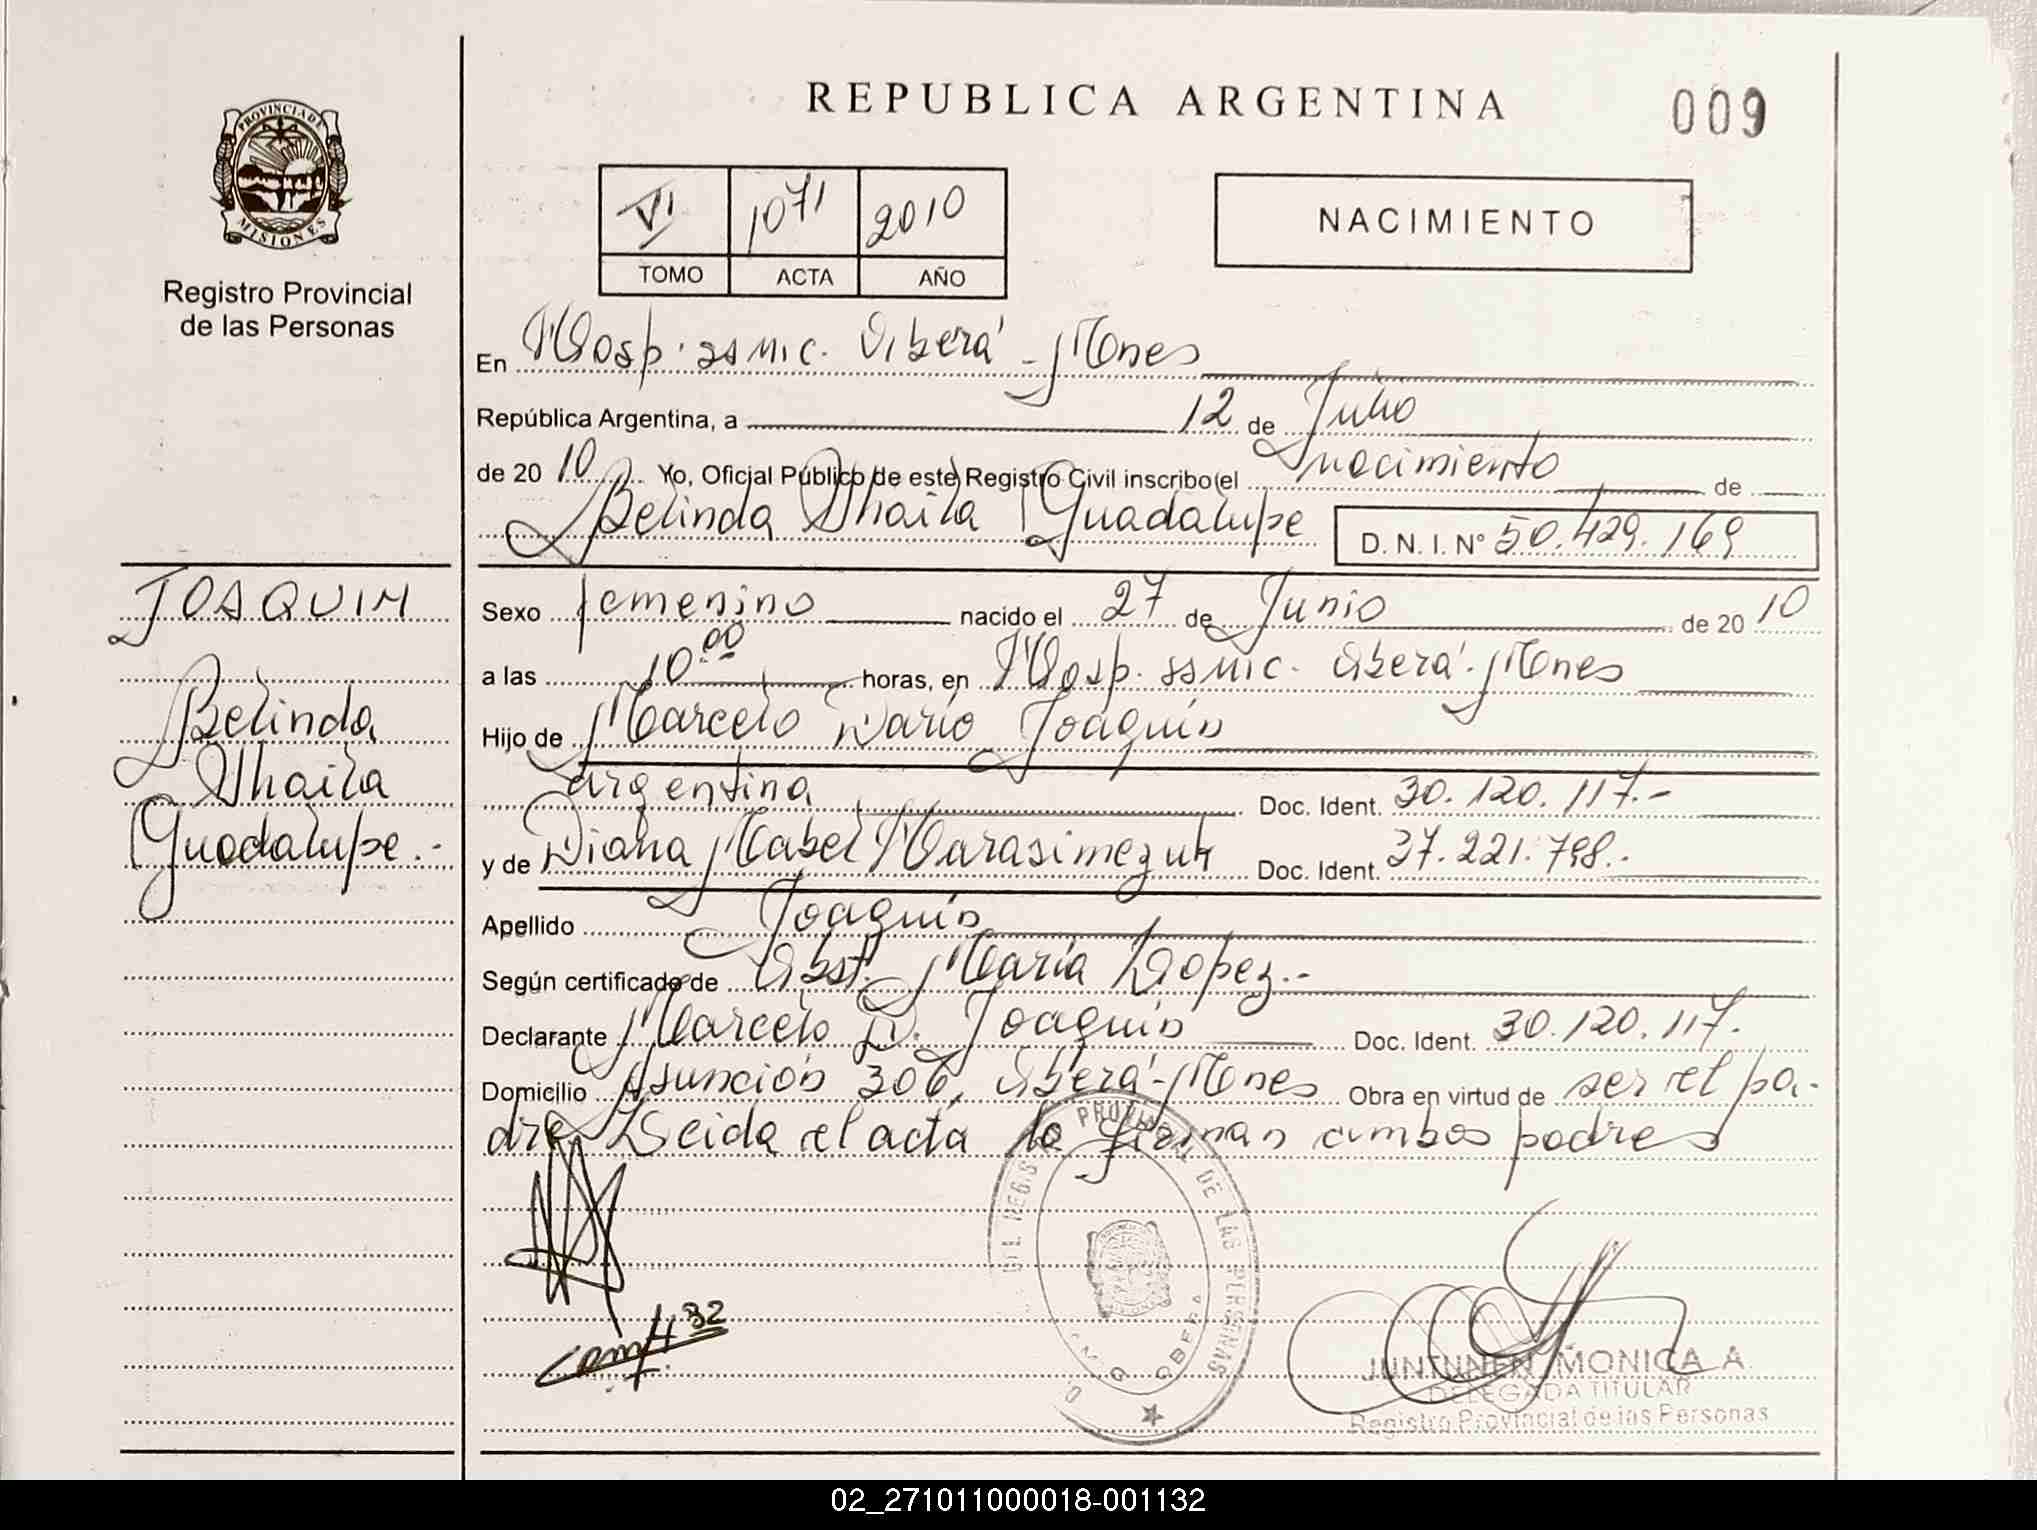 REPUBLICA ARGENTINA
009
PROVINCIA DE
MISIONES
Registro Provincial
de las Personas
VI 1071 2010
TOMO ACTA AÑO
NACIMIENTO
En Hosp. ssmic. Oberá - Mnes
República Argentina, a 12 de Julio
de 20 10 Yo, Oficial Público de este Registro Civil inscribo el nacimiento de
Belinda Thaila Guadalupe D. N. I. N° 50.429.169
JOAQUIN
Belinda
Thaila
Guadalupe.-
Sexo femenino nacido el 27 de Junio de 20 10
a las 10:00 horas, en Hosp. ssmic. Oberá - Mnes
Hijo de Marcelo Dario Joaquin
argentina Doc. Ident. 30.120.117.-
y de Diana Mabel Harasimezuk Doc. Ident. 37.221.798.-
Apellido Joaquin
Según certificado de Obst. Maria Lopez.-
Declarante Marcelo D. Joaquin Doc. Ident. 30.120.117.
Domicilio Asunción 306, Oberá - Mnes Obra en virtud de ser el pa-
dre Leida el acta la firman ambos padres
PROVINCIAL DE LAS PERSONAS
OBERA
JUNTUNEN MONICA A.
DELEGADA TITULAR
Registro Provincial de las Personas
02_271011000018-001132